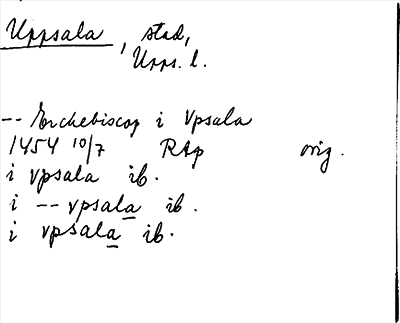 Uppsala, stad,
Upps. l.
-- Erchebiscop i Vpsala
1454 10/7 RAp orig.
i vpsala ib.
i -- vpsala ib.
i vpsala ib.